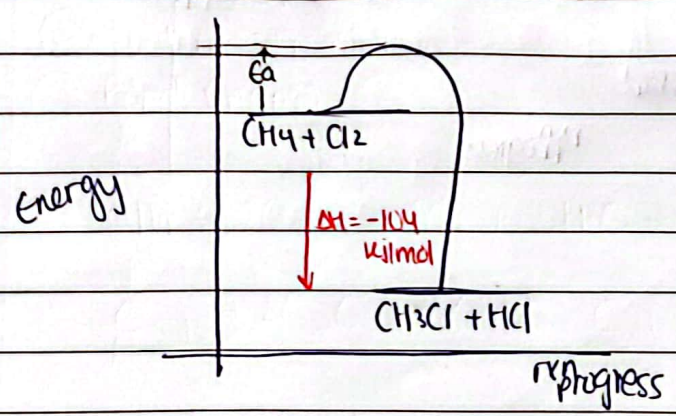 Ea
CH4 + Cl2
Energy
ΔH = -104
kJ/mol
CH3Cl + HCl
rxprogress